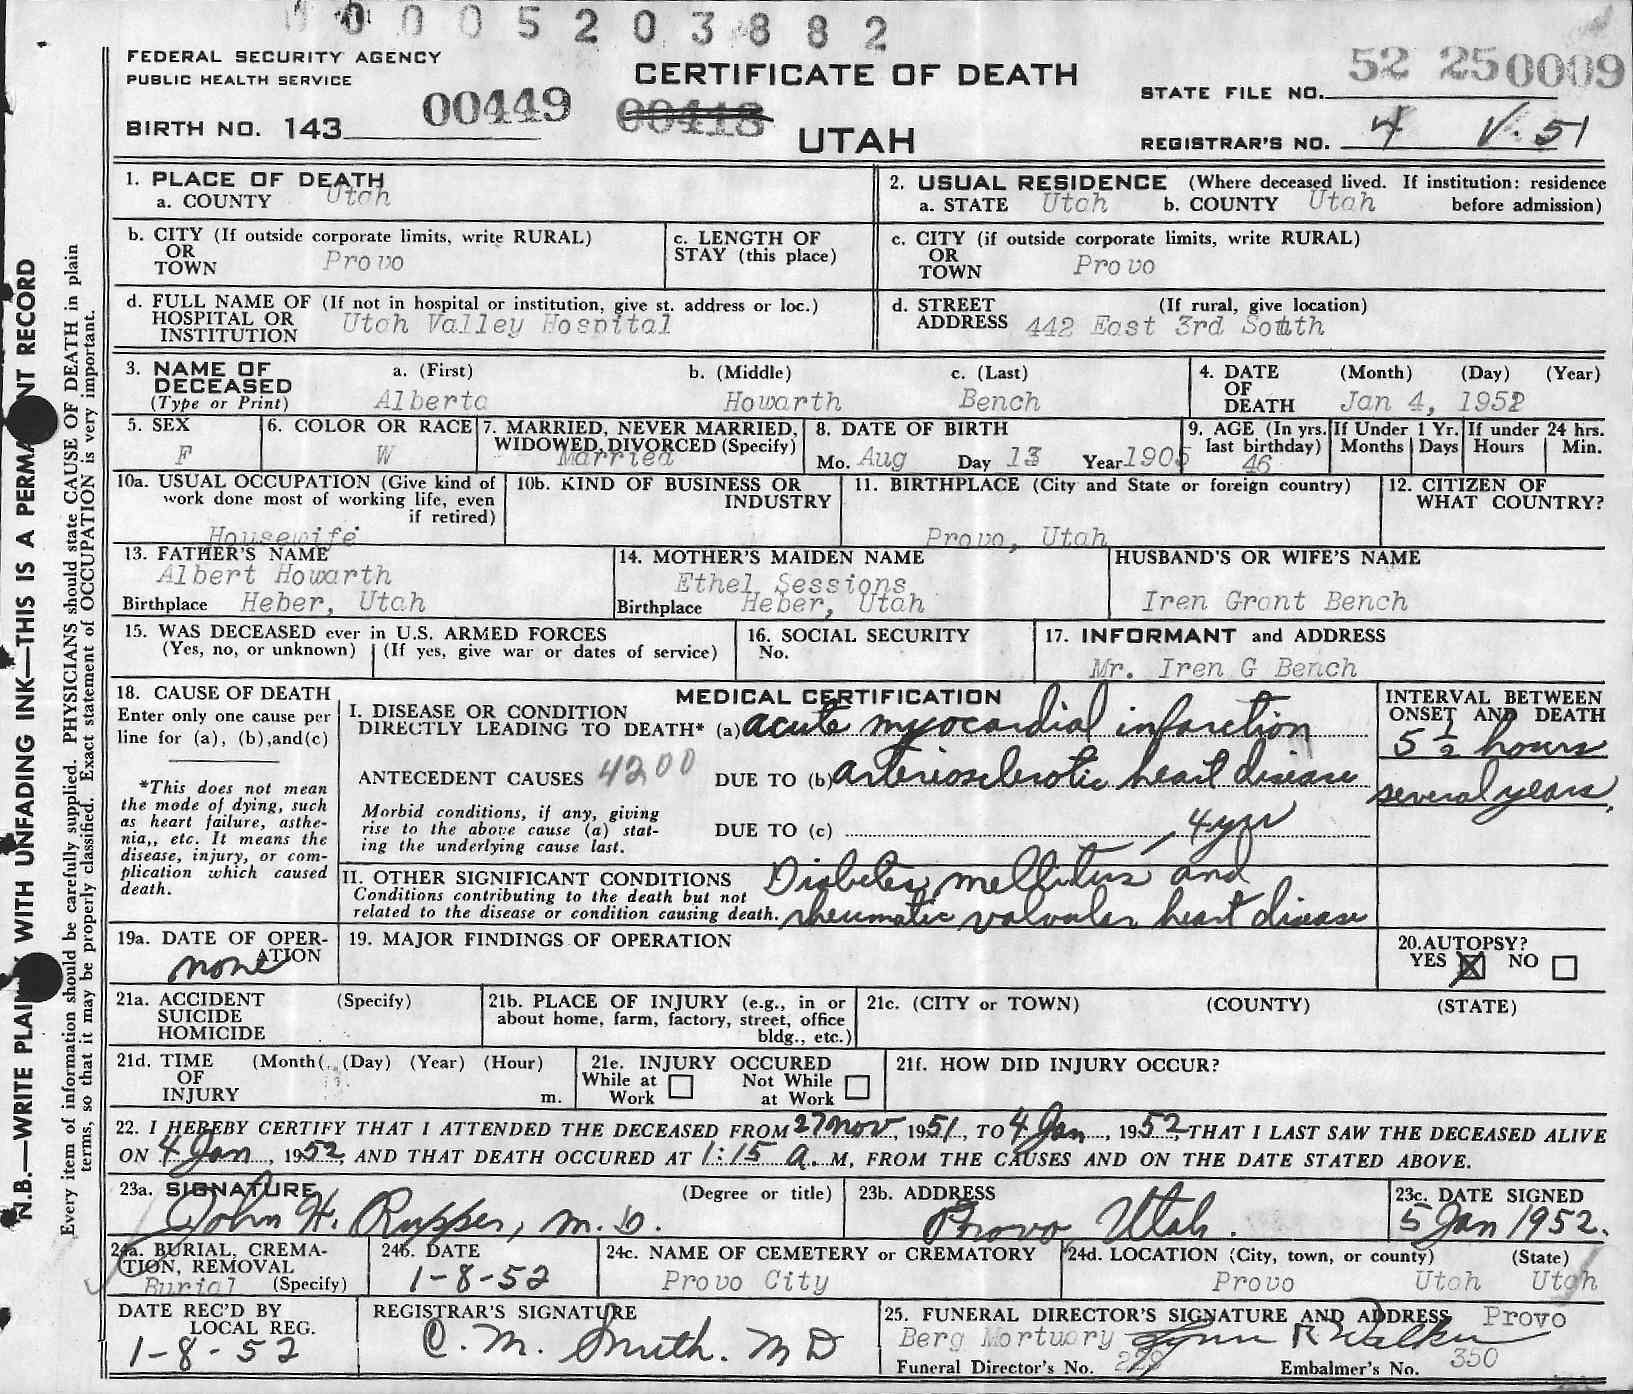 0005203882
FEDERAL SECURITY AGENCY
PUBLIC HEALTH SERVICE
CERTIFICATE OF DEATH
UTAH
BIRTH NO. 143 00449 00418
STATE FILE NO. 52 25 0009
REGISTRAR'S NO. 4 V. 51
1. PLACE OF DEATH
a. COUNTY Utah
2. USUAL RESIDENCE (Where deceased lived. If institution: residence before admission)
a. STATE Utah b. COUNTY Utah
b. CITY (If outside corporate limits, write RURAL)
OR
TOWN Provo
c. LENGTH OF
STAY (this place)
c. CITY (if outside corporate limits, write RURAL)
OR
TOWN Provo
d. FULL NAME OF (If not in hospital or institution, give st. address or loc.)
HOSPITAL OR
INSTITUTION Utah Valley Hospital
d. STREET (If rural, give location)
ADDRESS 442 East 3rd South
3. NAME OF
DECEASED
(Type or Print)
a. (First) b. (Middle) c. (Last)
Alberta Howarth Bench
4. DATE (Month) (Day) (Year)
OF
DEATH Jan 4, 1952
5. SEX
F
6. COLOR OR RACE
W
7. MARRIED, NEVER MARRIED,
WIDOWED, DIVORCED (Specify)
Married
8. DATE OF BIRTH
Mo. Aug Day 13 Year 1905
9. AGE (In yrs. last birthday)
46
If Under 1 Yr.
Months Days
If under 24 hrs.
Hours Min.
10a. USUAL OCCUPATION (Give kind of
work done most of working life, even
if retired)
Housewife
10b. KIND OF BUSINESS OR
INDUSTRY
11. BIRTHPLACE (City and State or foreign country)
Provo, Utah
12. CITIZEN OF
WHAT COUNTRY?
13. FATHER'S NAME
Albert Howarth
Birthplace Heber, Utah
14. MOTHER'S MAIDEN NAME
Ethel Sessions
Birthplace Heber, Utah
HUSBAND'S OR WIFE'S NAME
Iren Grant Bench
15. WAS DECEASED ever in U.S. ARMED FORCES
(Yes, no, or unknown) (If yes, give war or dates of service)
16. SOCIAL SECURITY
No.
17. INFORMANT and ADDRESS
Mr. Iren G Bench
18. CAUSE OF DEATH
Enter only one cause per
line for (a), (b), and (c)
*This does not mean
the mode of dying, such
as heart failure, asthe-
nia,, etc. It means the
disease, injury, or com-
plication which caused
death.
MEDICAL CERTIFICATION
I. DISEASE OR CONDITION
DIRECTLY LEADING TO DEATH* (a) acute myocardial infarction
ANTECEDENT CAUSES 4200 DUE TO (b) arteriosclerotic heart disease
Morbid conditions, if any, giving
rise to the above cause (a) stat-
ing the underlying cause last.
DUE TO (c) , 4 yr
II. OTHER SIGNIFICANT CONDITIONS
Conditions contributing to the death but not
related to the disease or condition causing death.
Diabetes mellitus and
rheumatic valvular heart disease
INTERVAL BETWEEN
ONSET AND DEATH
5 1/2 hours
several years,
19a. DATE OF OPER-
ATION
none
19. MAJOR FINDINGS OF OPERATION
20. AUTOPSY?
YES X NO
21a. ACCIDENT (Specify)
SUICIDE
HOMICIDE
21b. PLACE OF INJURY (e.g., in or
about home, farm, factory, street, office
bldg., etc.)
21c. (CITY or TOWN) (COUNTY) (STATE)
21d. TIME (Month) (Day) (Year) (Hour)
OF
INJURY m.
21e. INJURY OCCURED
While at Work Not While at Work
21f. HOW DID INJURY OCCUR?
22. I HEREBY CERTIFY THAT I ATTENDED THE DECEASED FROM 27 Nov, 1951, TO 4 Jan, 1952, THAT I LAST SAW THE DECEASED ALIVE
ON 4 Jan, 1952, AND THAT DEATH OCCURED AT 1:15 a. M, FROM THE CAUSES AND ON THE DATE STATED ABOVE.
23a. SIGNATURE (Degree or title)
John H. Rupper, M.D.
23b. ADDRESS
Provo, Utah.
23c. DATE SIGNED
5 Jan 1952.
24a. BURIAL, CREMA-
TION, REMOVAL
Burial (Specify)
24b. DATE
1-8-52
24c. NAME OF CEMETERY or CREMATORY
Provo City
24d. LOCATION (City, town, or county) (State)
Provo Utah Utah
DATE REC'D BY
LOCAL REG.
1-8-52
REGISTRAR'S SIGNATURE
C. M. Smith. MD
25. FUNERAL DIRECTOR'S SIGNATURE AND ADDRESS Provo
Berg Mortuary Lynn R Walker
Funeral Director's No. 229 Embalmer's No. 350
N.B.—WRITE PLAINLY WITH UNFADING INK—THIS IS A PERMANENT RECORD
Every item of information should be carefully supplied. PHYSICIANS should state CAUSE OF DEATH in plain
terms, so that it may be properly classified. Exact statement of OCCUPATION is very important.